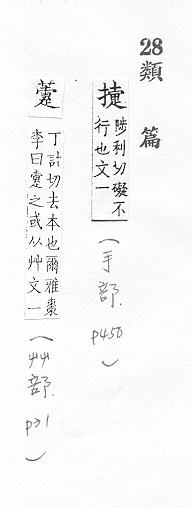 28
類篇
㨖
陟利切礙不
行也文一
(手部. p450)
丁計切去本也爾雅棗
李曰疐之或从艸文一
(艸部. p31)